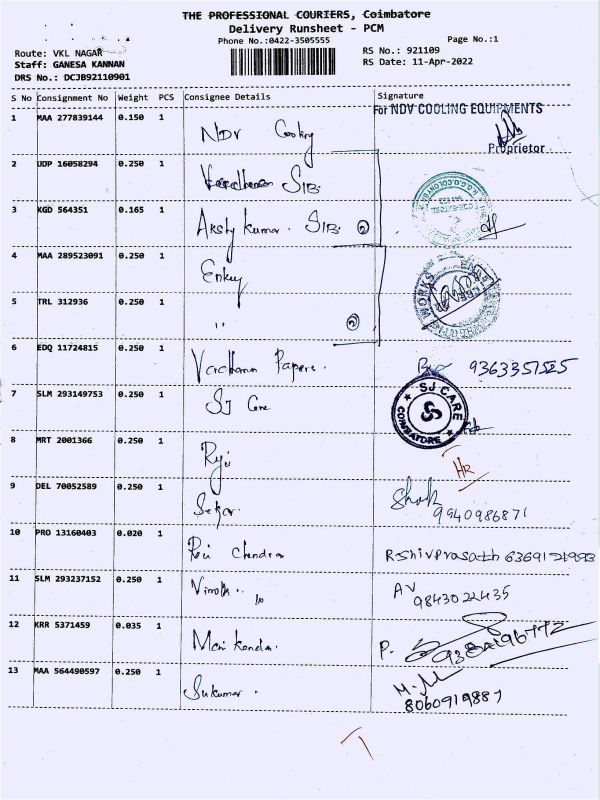 THE PROFESSIONAL COURIERS, Coimbatore
Delivery Runsheet - PCM
Phone No.:0422-3505555
Page No.:1
Route: VKL NAGAR
Staff: GANESA KANNAN
DRS No.: DCJB92110901
RS No.: 921109
RS Date: 11-Apr-2022
S No Consignment No Weight PCS Consignee Details Signature
For NDV COOLING EQUIPMENTS
1 MAA 277839144 0.150 1 NDV
Proprietor
2 UDP 16058294 0.250 1 Vardhaman SIB
3 KGD 564351 0.165 1 Akshy kumar. SIB. 2
4 MAA 289523091 0.250 1
WORKS
5 TRL 312936 0.250 1 " 2
6 EDQ 11724815 0.250 1 Vardhman Papers. 9363351525
7 SLM 293149753 0.250 1 SJ Care
SJ CARE
COIMBATORE
8 MRT 2001366 0.250 1 Raju
HR
9 DEL 70052589 0.250 1 Sekar.
9940986871
10 PRO 13160403 0.020 1 Chandran RShivprasath
11 SLM 293237152 0.250 1 AV
9843022435
12 KRR 5371459 0.035 1 Manikandan P.
13 MAA 564490597 0.250 1 Sukumar. M.M
8060919887